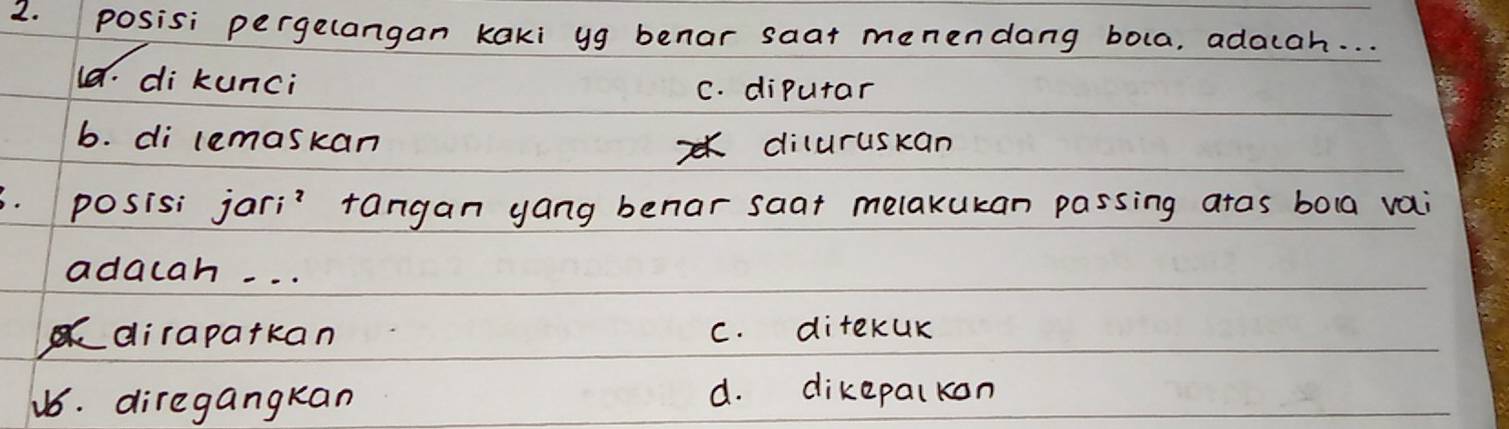 2. posisi pergelangan kaki yg benar saat menendang bola, adalah...
a. di kunci c. diputar
b. di lemaskan d. diluruskan
3. posisi jari² tangan yang benar saat melakukan passing atas bola voli
adalah ...
a. dirapatkan c. ditekuk
b. diregangkan d. dikepalkan